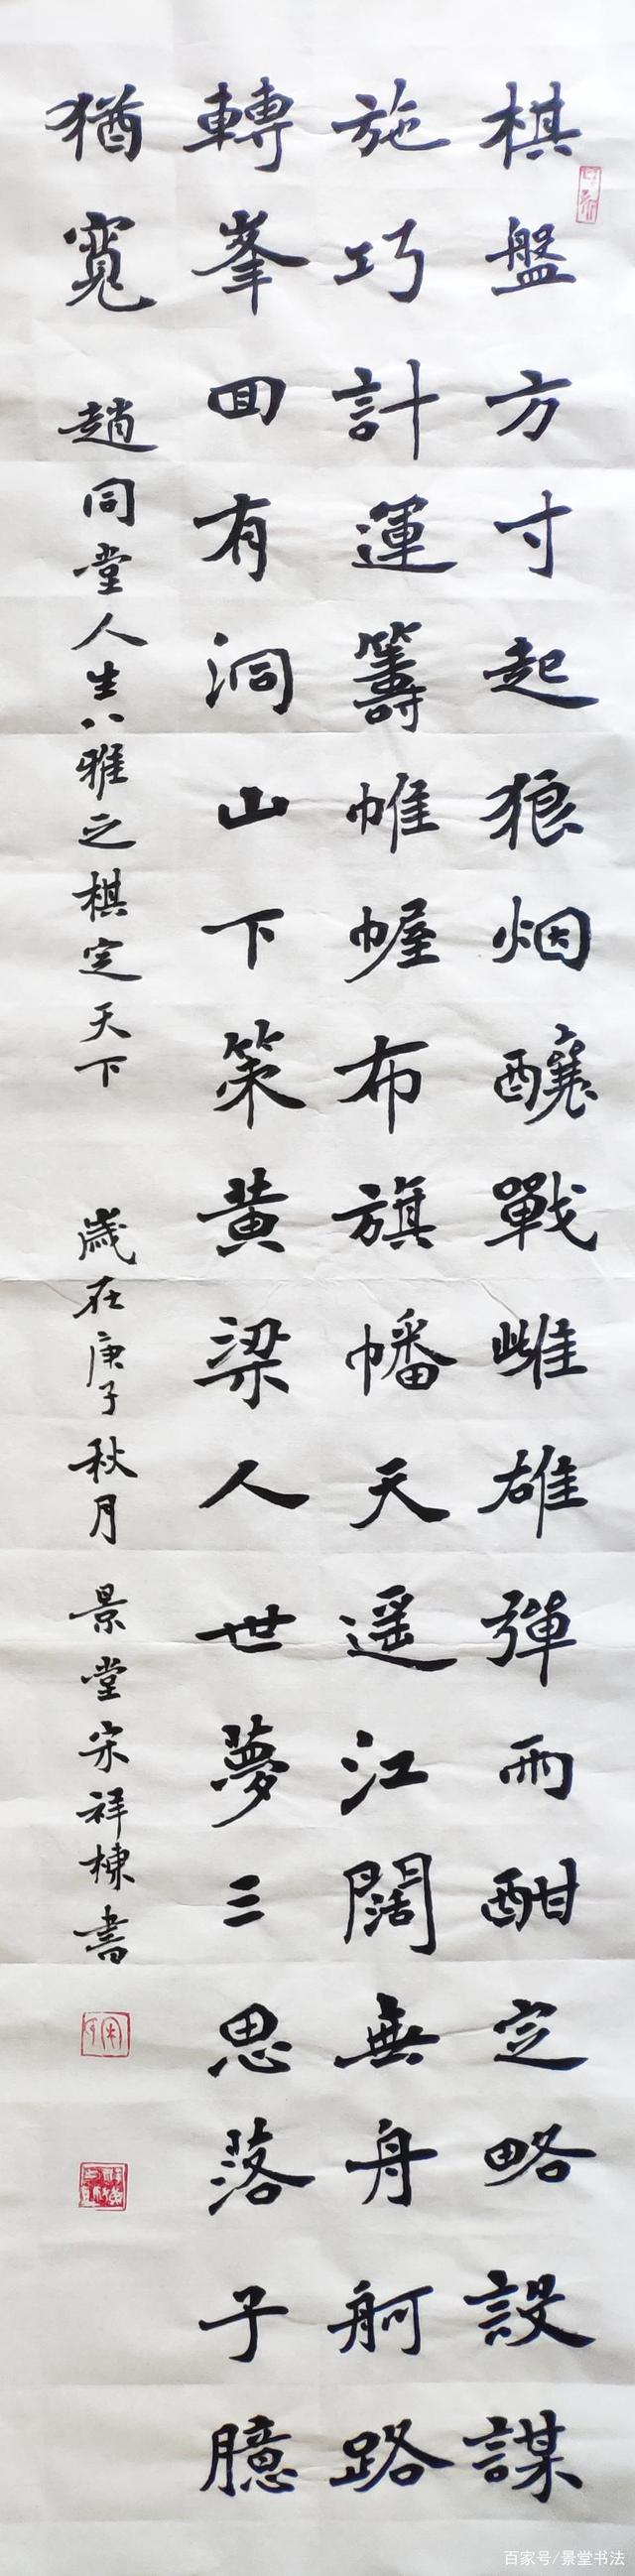 棋盤方寸起狼烟釀戰雌雄彈雨酣定略設謀
施巧計運籌帷幄布旗幡天遥江闊無舟舸路
轉峯回有洞山下策黄梁人世夢三思落子臆
猶寬 趙同堂人生八雅之棋定天下 歲在庚子秋月 景堂宋祥棟書
百家号/景堂书法